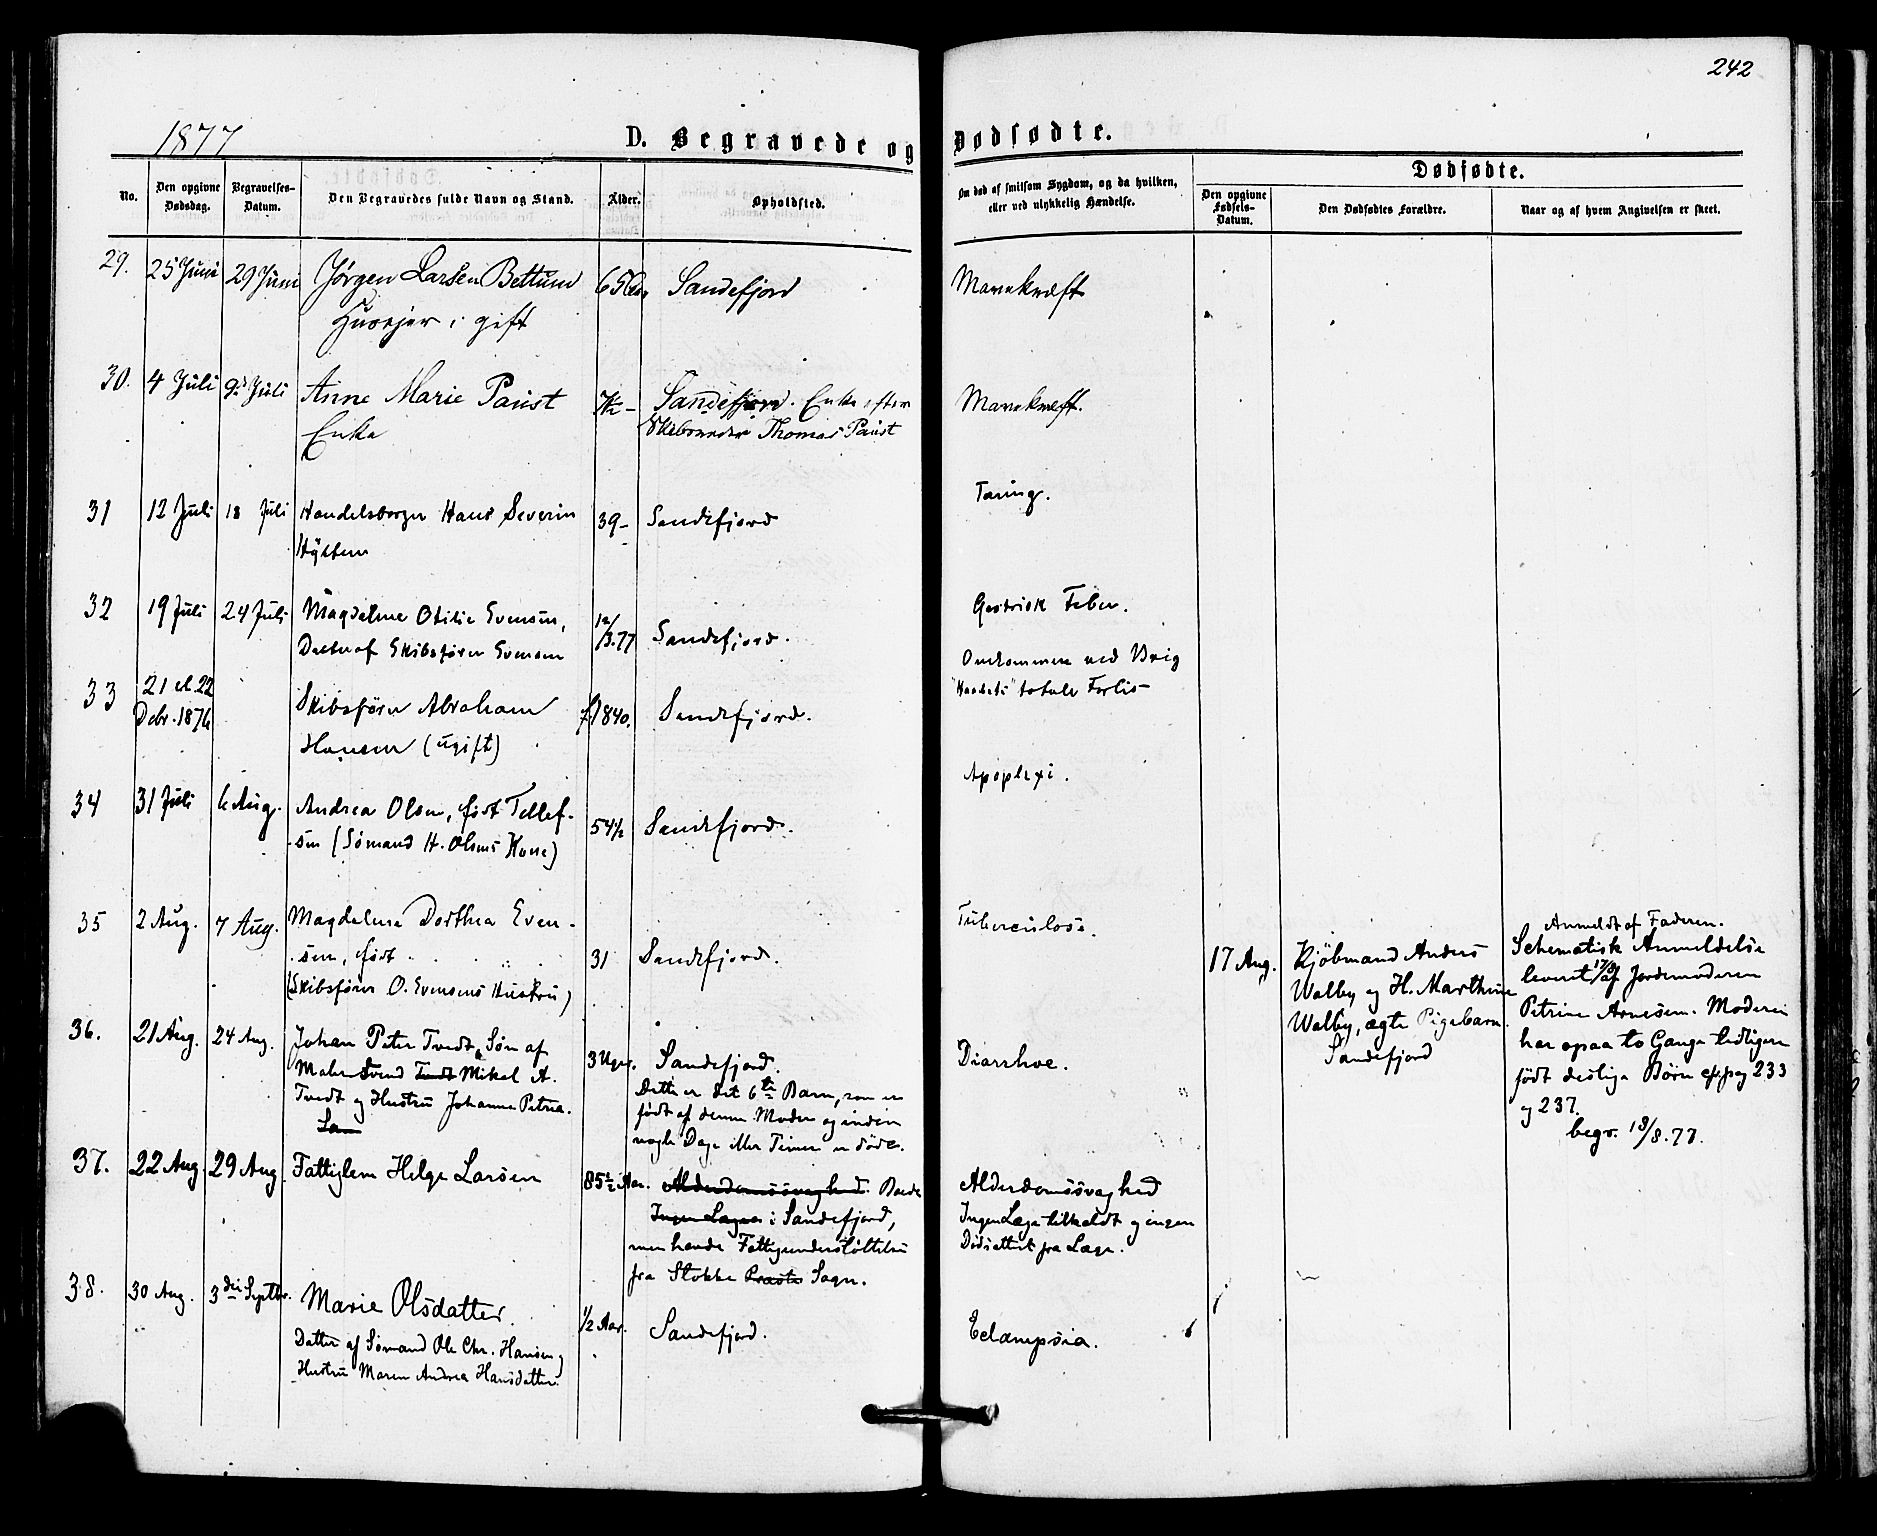 242
1877
D. Begravede og Dødfødte.
No.
Den opgivne Dødsdag.
Begravelses-Datum.
Den Begravedes fulde Navn og Stand.
Alder.
Opholdsted.
Om død af smitsom Sygdom, og da hvilken,
eller ved ulykkelig Hændelse.
Dødfødte.
Den opgivne Fødsels-Datum.
Den Dødfødtes Forældre.
Naar og af hvem Angivelsen er skeet.
29. 25 Juni 29 Juni Jørgen Larsen Bettum 65 Sandefjord Mavekræft
Huusejer, gift
30. 4 Juli 9 Juli Anne Marie Paust Sandefjord. Enke efter Mavekræft.
Enke Thomas Paust
31 12 Juli 18 Juli Handelsborger Hans Severin 39 Sandefjord Tæring.
32 19 Juli 24 Juli Magdalene Otilie Evensen, 12/3.77 Sandefjord. Gastrisk Feber.
Datter af Skibsfører Evensen
33 21 el. 22 Skibsfører Abraham f 1840. Sandefjord. Omkommen ved Brig
Debr. 1876 Hansen (ugift) totale Forlis
34 31 Juli 6 Aug. Andrea Olsen, født Tellef- 54½ Sandefjord. Apoplexi.
sen (Sømand H. Olsens Kone)
35 2 Aug. 7 Aug. Magdalene Dorthea Even- 31 Sandefjord. Tuberculose.
sen, født . . . .
(Skibsfører O. Evensens Hustru)
17 Aug. Kjöbmand Anders
Walby og H. Marthine
Walby, ægte Pigebarn.
Sandefjord
Anmeldt af Faderen.
Schematisk Anmeldelse
leveret 17/8 af Jordemoderen
Petrine Arnesen. Moderen
har ogsaa to Gange tidligere
født deslige Børn cf. pag 233
og 237.
begr. 18/8.77.
36. 21 Aug. 24 Aug. Johan Peter Tvedt, Søn af 3 Uger. Sandefjord. Diarrhoe.
Maler Svend Tvedt Mikal A.
Tvedt og Hustru Johanne Petrea.
Dette er det 6te Barn, som er
født af denne Moder og inden
nogle Dage eller Timer er døde.
37. 22 Aug 29 Aug. Fattiglem Helge Larsen 85½ Aar. Alderdomssvaghed. Boede Alderdomssvaghed
Ingen Læge i Sandefjord,
men havde Fattigunderstøttelse
fra Stokke Præste Sogn.
Ingen Læge tilkaldt og ingen
Dødsattest fra Læge.
38. 30 Aug. 3die Septbr. Marie Olsdatter. ½ Aar. Sandefjord. Eclampsia.
Datter af Sømand Ole Chr. Hansen og
Hustru Maren Andrea Hansdatter.